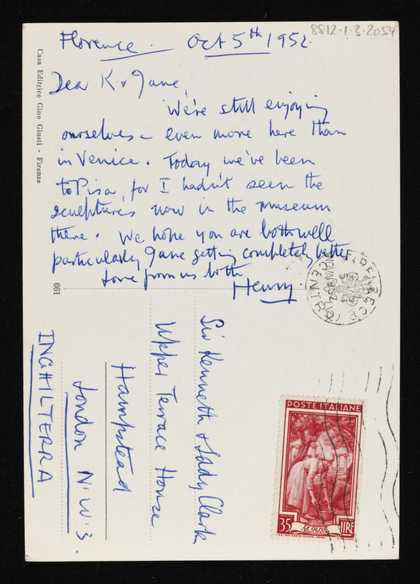 8812-1-3-2054
Florence. Oct 5th 1952.
Dear K & Jane,
We're still enjoying
ourselves – even more here than
in Venice. Today we've been
to Pisa, for I hadn't seen the
sculptures now in the museum
there. We hope you are both well
particularly Jane getting completely better
Love from us both
Henry
Casa Editrice Gino Giusti - Firenze
Sir Kenneth & Lady Clark
Upper Terrace House
Hampstead
London N.W.3.
INGHILTERRA
POSTE ITALIANE
35 LIRE